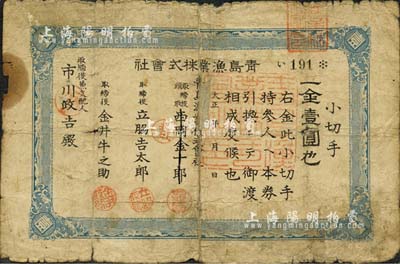 上海陽明拍賣
い 191 ※
青島漁業株式會社
小切手
一金壹圓也
右金此小切手
持參人ヘ本券
引換ニテ御渡
相成度候也
大正 年 月 日
取締役
取締役 立脇吉太郎
取締役 金井牛之助
取締役兼支配人
市川政吉殿
上海陽明拍賣